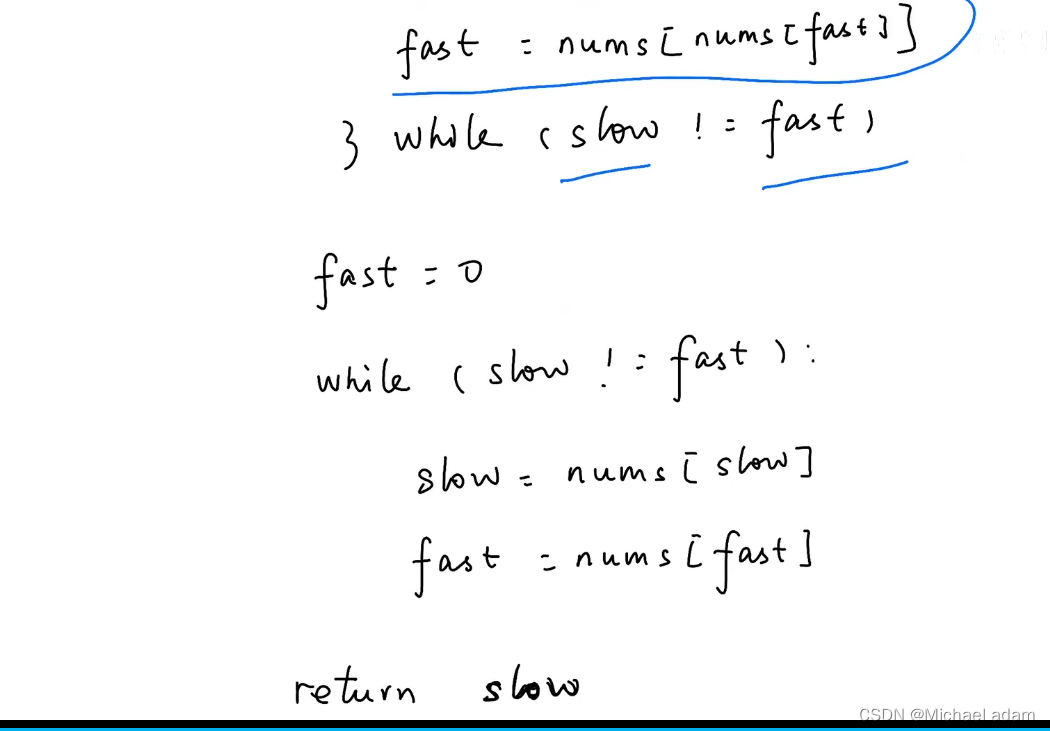 fast = nums[nums[fast]]
} while (slow != fast)
fast = 0
while (slow != fast):
slow = nums[slow]
fast = nums[fast]
return slow
CSDN @Michael adam